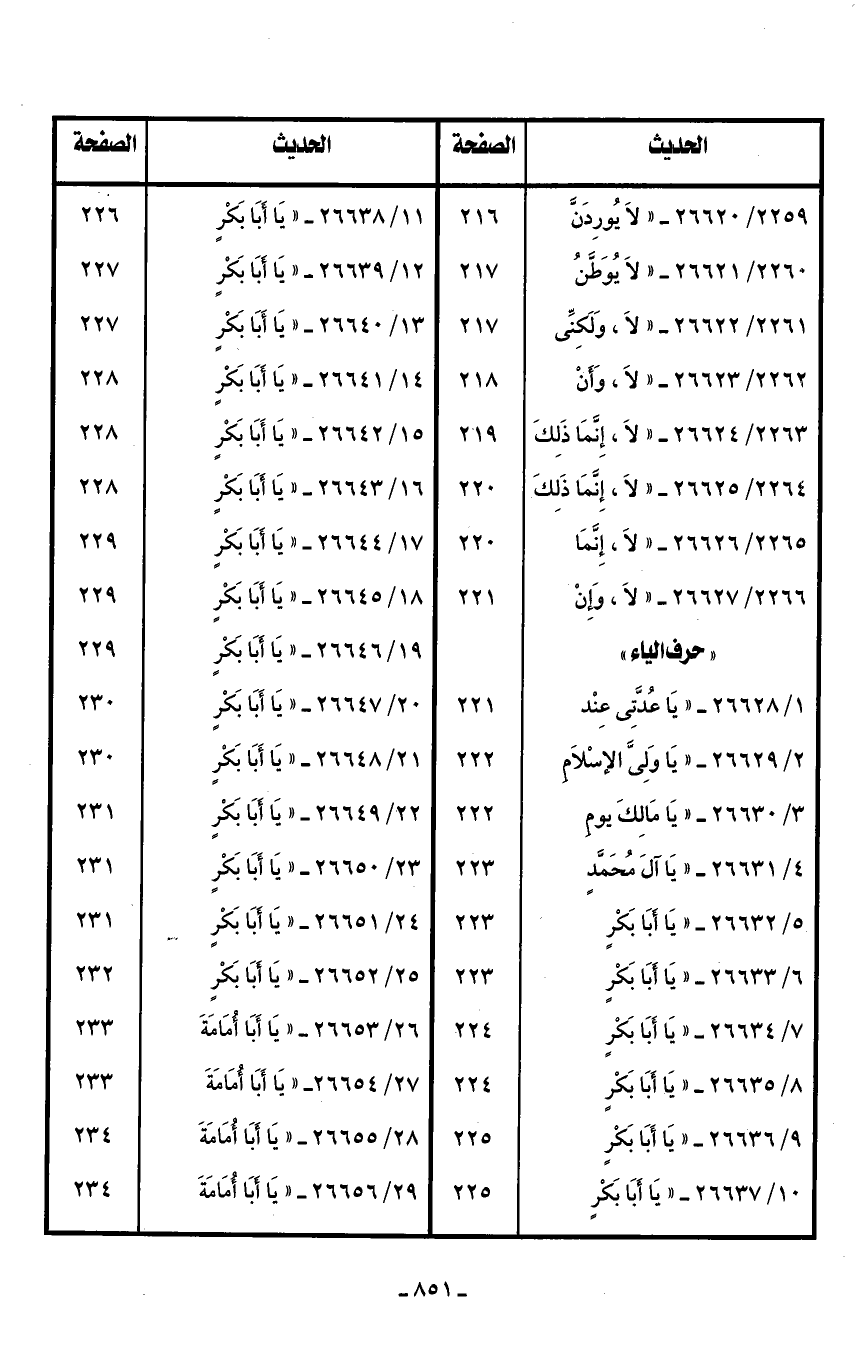 الحديث الصفحة الحديث الصفحة
٢٢٥٩/ ٢٦٦٢٠ ـ « لاَ يُورِدَنَّ ٢١٦ ١١/ ٢٦٦٣٨ ـ « يَا أَبَا بَكْرٍ ٢٢٦
٢٢٦٠/ ٢٦٦٢١ ـ « لاَ يُوَطَّنُ ٢١٧ ١٢/ ٢٦٦٣٩ ـ « يَا أَبَا بَكْرٍ ٢٢٧
٢٢٦١/ ٢٦٦٢٢ ـ « لاَ ، وَلَكِنِّى ٢١٧ ١٣/ ٢٦٦٤٠ ـ « يَا أَبَا بَكْرٍ ٢٢٧
٢٢٦٢/ ٢٦٦٢٣ ـ « لاَ ، وَأَنْ ٢١٨ ١٤/ ٢٦٦٤١ ـ « يَا أَبَا بَكْرٍ ٢٢٨
٢٢٦٣/ ٢٦٦٢٤ ـ « لاَ ، إِنَّمَا ذَلِكَ ٢١٩ ١٥/ ٢٦٦٤٢ ـ « يَا أَبَا بَكْرٍ ٢٢٨
٢٢٦٤/ ٢٦٦٢٥ ـ « لاَ ، إِنَّمَا ذَلِكَ ٢٢٠ ١٦/ ٢٦٦٤٣ ـ « يَا أَبَا بَكْرٍ ٢٢٨
٢٢٦٥/ ٢٦٦٢٦ ـ « لاَ ، إِنَّمَا ٢٢٠ ١٧/ ٢٦٦٤٤ ـ « يَا أَبَا بَكْرٍ ٢٢٩
٢٢٦٦/ ٢٦٦٢٧ ـ « لاَ ، وَإِنْ ٢٢١ ١٨/ ٢٦٦٤٥ ـ « يَا أَبَا بَكْرٍ ٢٢٩
« حرف الياء » ١٩/ ٢٦٦٤٦ ـ « يَا أَبَا بَكْرٍ ٢٢٩
١/ ٢٦٦٢٨ ـ « يَا عُدَّتِى عِنْد ٢٢١ ٢٠/ ٢٦٦٤٧ ـ « يَا أَبَا بَكْرٍ ٢٣٠
٢/ ٢٦٦٢٩ ـ « يَا وَلِىَّ الإِسْلاَمِ ٢٢٢ ٢١/ ٢٦٦٤٨ ـ « يَا أَبَا بَكْرٍ ٢٣٠
٣/ ٢٦٦٣٠ ـ « يَا مَالِكَ يومِ ٢٢٢ ٢٢/ ٢٦٦٤٩ ـ « يَا أَبَا بَكْرٍ ٢٣١
٤/ ٢٦٦٣١ ـ « يَا آلَ مُحَمَّدٍ ٢٢٣ ٢٣/ ٢٦٦٥٠ ـ « يَا أَبَا بَكْرٍ ٢٣١
٥/ ٢٦٦٣٢ ـ « يَا أَبَا بَكْرٍ ٢٢٣ ٢٤/ ٢٦٦٥١ ـ « يَا أَبَا بَكْرٍ ٢٣١
٦/ ٢٦٦٣٣ ـ « يَا أَبَا بَكْرٍ ٢٢٣ ٢٥/ ٢٦٦٥٢ ـ « يَا أَبَا بَكْرٍ ٢٣٢
٧/ ٢٦٦٣٤ ـ « يَا أَبَا بَكْرٍ ٢٢٤ ٢٦/ ٢٦٦٥٣ ـ « يَا أَبَا أُمَامَةَ ٢٣٣
٨/ ٢٦٦٣٥ ـ « يَا أَبَا بَكْرٍ ٢٢٤ ٢٧/ ٢٦٦٥٤ ـ « يَا أَبَا أُمَامَةَ ٢٣٣
٩/ ٢٦٦٣٦ ـ « يَا أَبَا بَكْرٍ ٢٢٥ ٢٨/ ٢٦٦٥٥ ـ « يَا أَبَا أُمَامَةَ ٢٣٤
١٠/ ٢٦٦٣٧ ـ « يَا أَبَا بَكْرٍ ٢٢٥ ٢٩/ ٢٦٦٥٦ ـ « يَا أَبَا أُمَامَةَ ٢٣٤
ـ ٨٥١ ـ